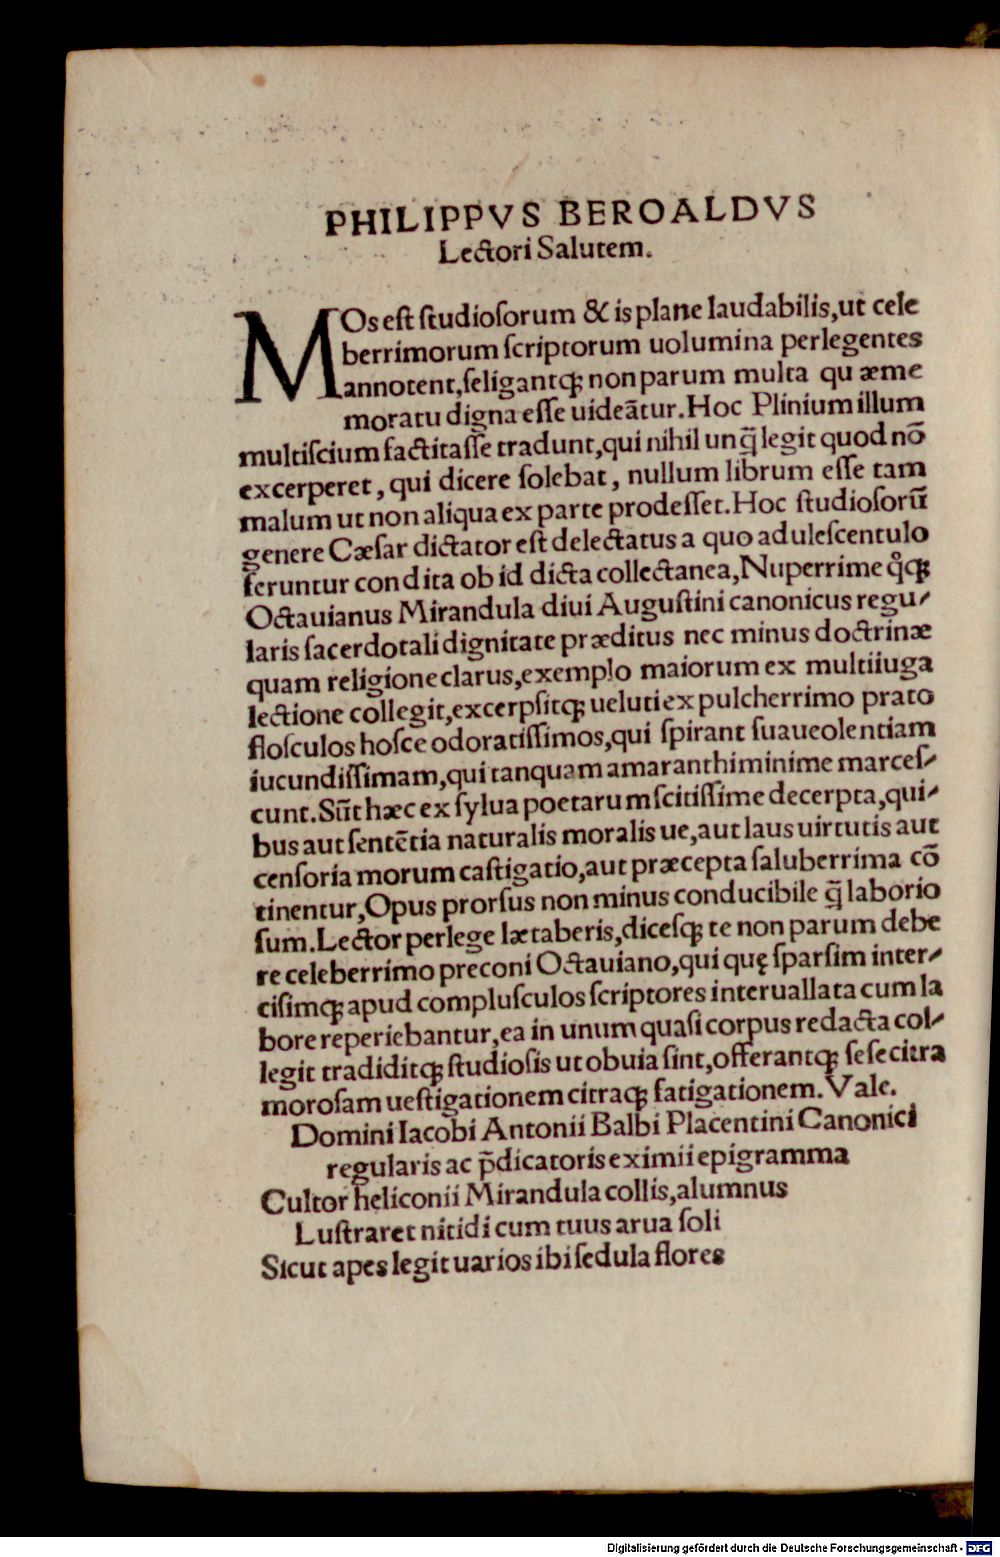 PHILIPPVS BEROALDVS
Lectori Salutem.
MOs est studiosorum & is plane laudabilis,ut cele
berrimorum scriptorum uolumina perlegentes
annotent,seligantq; non parum multa qu æme
moratu digna esse uideãtur.Hoc Plinium illum
multiscium factitasse tradunt,qui nihil unq̃ legit quod nõ
excerperet, qui dicere solebat, nullum librum esse tam
malum ut non aliqua ex parte prodesset.Hoc studiosorũ
genere Cæsar dictator est delectatus a quo adulescentulo
feruntur condita ob id dicta collectanea,Nuperrime qͦq;
Octauianus Mirandula diui Augustini canonicus regu-
laris sacerdotali dignitate præditus nec minus doctrinæ
quam religione clarus,exemplo maiorum ex multiiuga
lectione collegit,excerpsitq; ueluti ex pulcherrimo prato
flosculos hosce odoratissimos,qui spirant suaueolentiam
iucundissimam,qui tanquam amaranthi minime marces-
cunt.Sũt hæc ex sylua poetarum scitissime decerpta,qui-
bus aut sentẽtia naturalis moralis ue,aut laus uirtutis aut
censoria morum castigatio,aut præcepta saluberrima cõ
tinentur,Opus prorsus non minus conducibile q̃ laborio
sum.Lector perlege lætaberis,dicesq; te non parum debe
re celeberrimo preconi Octauiano,qui quę sparsim inter-
cisimq; apud complusculos scriptores interuallata cum la
bore reperiebantur,ea in unum quasi corpus redacta col-
legit tradiditq; studiosis ut obuia sint,offerantq; sese citra
morosam uestigationem citraq; fatigationem. Vale.
Domini Iacobi Antonii Balbi Placentini Canonici
regularis ac p̃dicatoris eximii epigramma
Cultor heliconii Mirandula collis,alumnus
Lustraret nitidi cum tuus arua soli
Sicut apes legit uarios ibi sedula flores
Digitalisierung gefördert durch die Deutsche Forschungsgemeinschaft - DFG